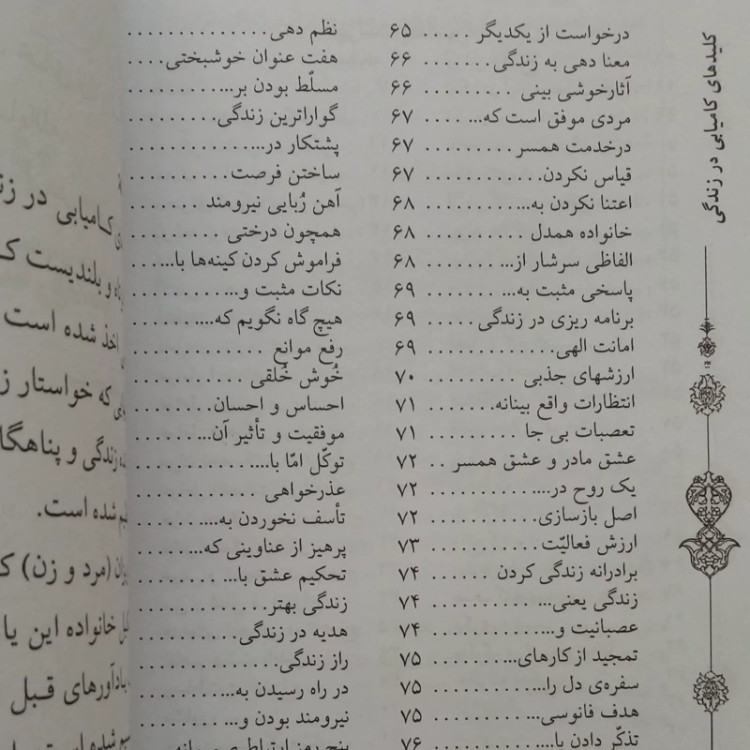 کلیدهای کامیابی در زندگی
درخواست از یکدیگر ..... ۶۵
معنا دهی به زندگی....... ۶۶
آثارخوشی بینی ......... ۶۶
مردی موفق است که... .... ۶۷
درخدمت همسر ......... ۶۷
قیاس نکردن............ ۶۷
اعتنا نکردن به............. ۶۸
خانواده همدل .......... ۶۸
الفاظی سرشار از... ....... ۶۸
پاسخی مثبت به... ....... ۶۹
برنامه ریزی در زندگی..... ۶۹
امانت الهی............. ۶۹
ارزشهای جذبی ......... ۷۰
انتظارات واقع بینانه....... ۷۱
تعصبات بی جا ......... ۷۱
عشق مادر و عشق همسر .. ۷۲
یک روح در............. ۷۲
اصل بازسازی........... ۷۲
ارزش فعالیّت .......... ۷۳
برادرانه زندگی کردن ...... ۷۴
زندگی یعنی... .......... ۷۴
عصبانیت و... .......... ۷۴
تمجید از کارهای......... ۷۵
سفره‌ی دل را... ......... ۷۵
هدف فانوسی........... ۷۵
تذکّر دادن با... ......... ۷۶
نظم دهی ..............
هفت عنوان خوشبختی....
مسلّط بودن بر...........
گواراترین زندگی.........
پشتکار در..............
ساختن فرصت..........
آهن رُبایی نیرومند .......
همچون درختی .........
فراموش کردن کینه‌ها با.....
نکات مثبت و...........
هیچ گاه نگویم که........
رفع موانع .............
خُوش خُلقی ...........
احساس و احسان........
موفقیت و تأثیر آن........
توکّل امّا با.............
عذرخواهی ............
تأسف نخوردن به........
پرهیز از عناوینی که.......
تحکیم عشق با... ........
زندگی بهتر............
هدیه در زندگی..........
راز زندگی.............
در راه رسیدن به.........
نیرومند بودن و... .......
پنج رمز ارتباط
کامیابی در
و بلندیست
اخذ شده است
که خواستار
زندگی و
شده است.
(مرد و زن)
خانواده این یا
یادآورهای قبل
شده است